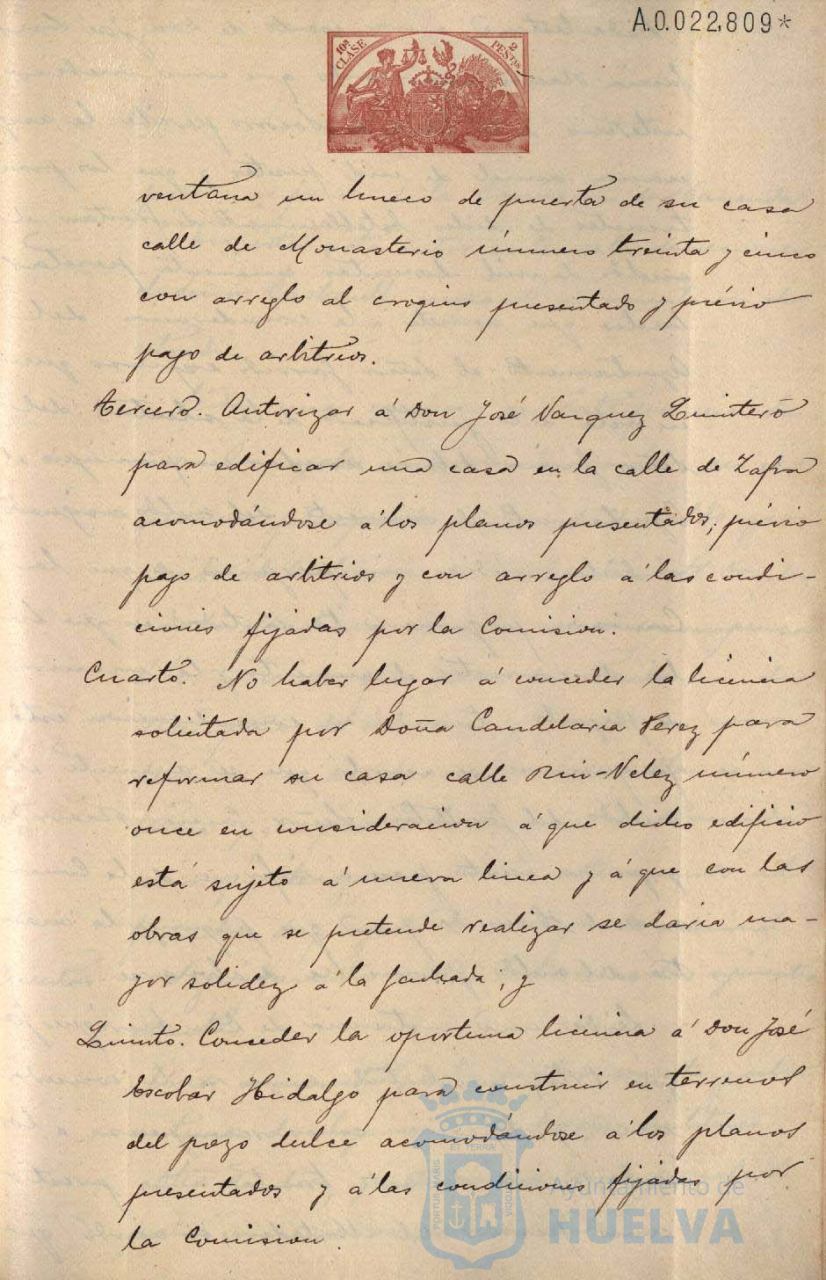 A.0.022,809*
10ª CLASE
2 PESETAS
ventana un hueco de puerta de su casa
calle de Monasterio número treinta y cinco
con arreglo al croquis presentado y prévio
pago de arbitrios.
Tercero. Autorizar á Don José Vazquez Quintero
para edificar una casa en la calle de Zafra
acomodándose á los planos presentados, prévio
pago de arbitrios y con arreglo á las condi-
ciones fijadas por la Comision.
Cuarto. No haber lugar á conceder la licencia
solicitada por Doña Candelaria Perez para
reformar su casa calle Rui-Velez número
once en consideracion á que dicho edificio
está sujeto á nueva linea y á que con las
obras que se pretende realizar se daria ma-
yor solidez á la fachada; y
Quinto. Conceder la oportuna licencia á Don José
Escobar Hidalgo para construir en terrenos
del pozo dulce acomodándose á los planos
presentados y á las condiciones fijadas por
la Comision.
Ayuntamiento de
HUELVA